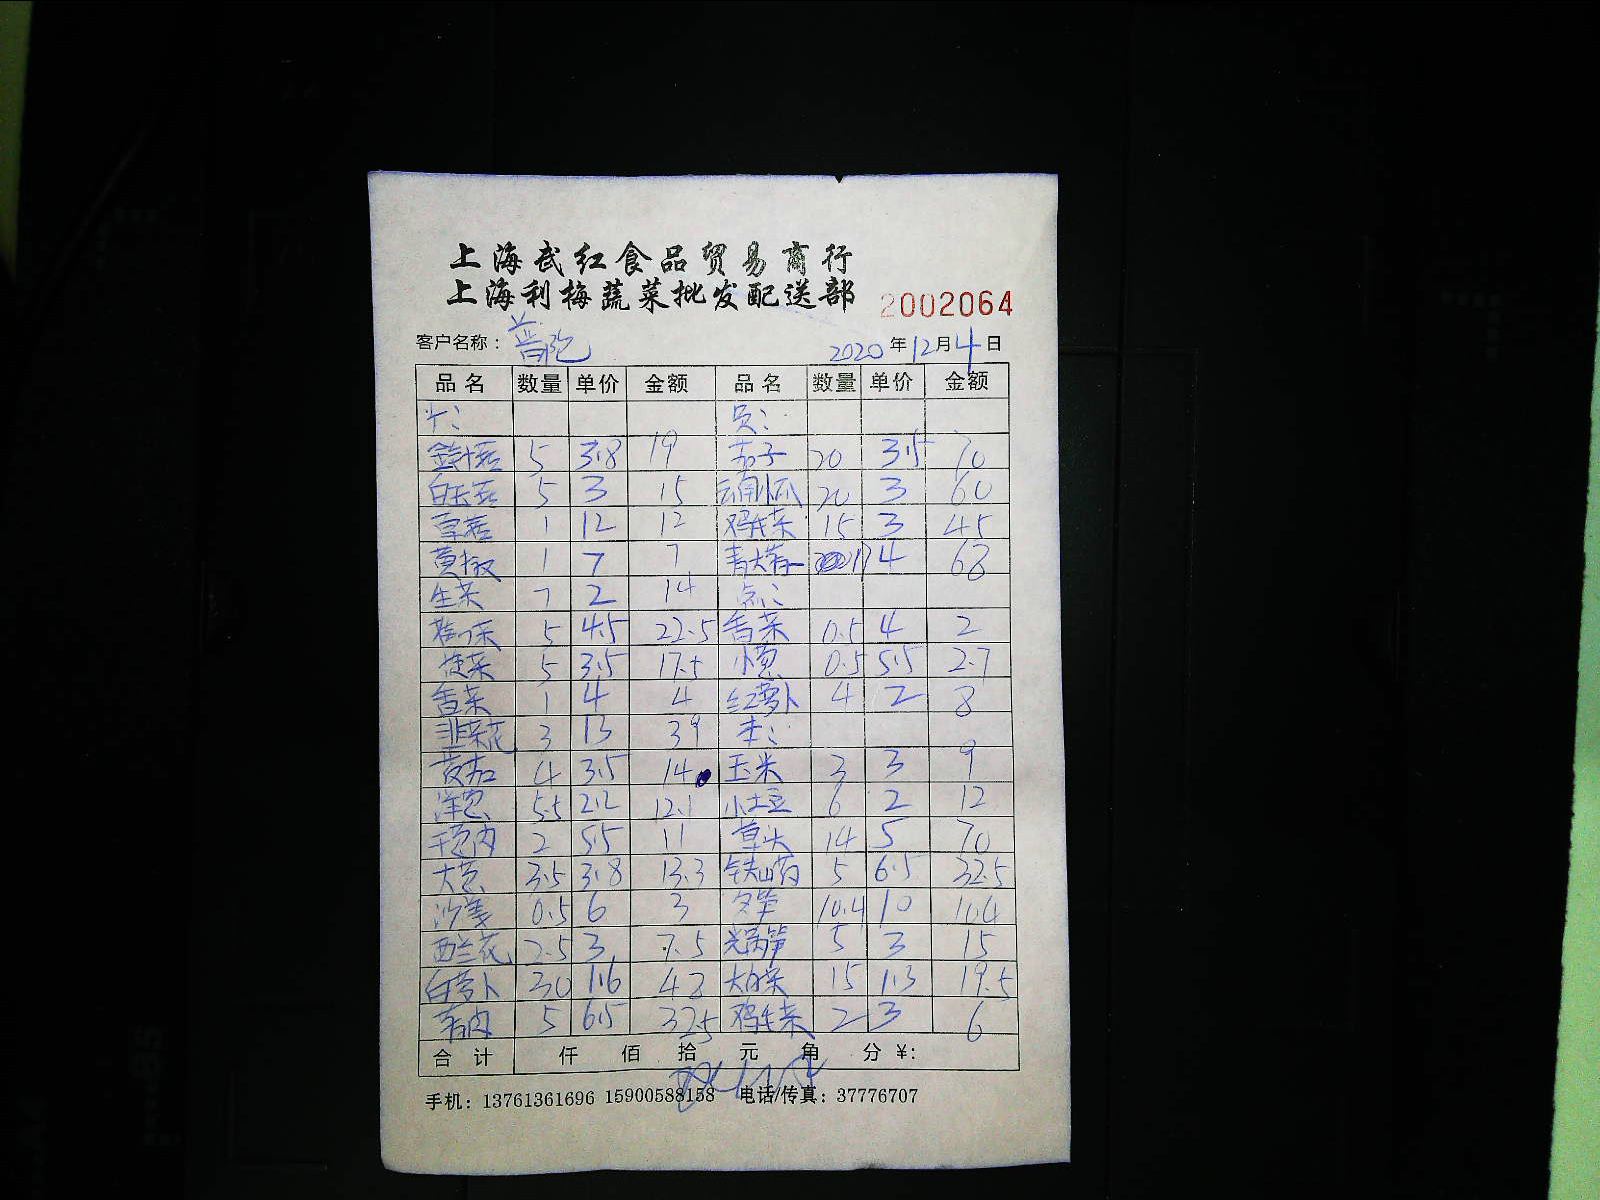 上海武红食品贸易商行
上海利梅蔬菜批发配送部 2002064
客户名称： 普陀 2020年12月4日
品名 数量 单价 金额 品名 数量 单价 金额
员：
5 3.8 19 茄子 20 3.5 70
白玉菇 5 3 15 20 3 60
草菇 1 12 12 鸡毛菜 15 3 45
黄椒 1 7 7 17 4 68
生菜 7 2 14 点：
5 4.5 22.5 香菜 0.5 4 2
5 3.5 17.5 小葱 0.5 5.5 2.7
香菜 1 4 4 红萝卜 4 2 8
韭菜花 3 13 39 本：
4 3.5 14 玉米 3 3 9
洋葱 5.5 2.2 12.1 小土豆 6 2 12
干葱肉 2 5.5 11 草头 14 5 70
大葱 3.5 3.8 13.3 铁山药 5 6.5 32.5
沙姜 0.5 6 3 冬笋 10.4 10 104
西兰花 2.5 3 7.5 光莴笋 5 3 15
白萝卜 30 1.6 48 大白菜 15 1.3 19.5
5 6.5 32.5 鸡毛菜 2 3 6
合计 仟 佰 拾 元 角 分 ¥:
手机：13761361696 15900588158 电话/传真：37776707